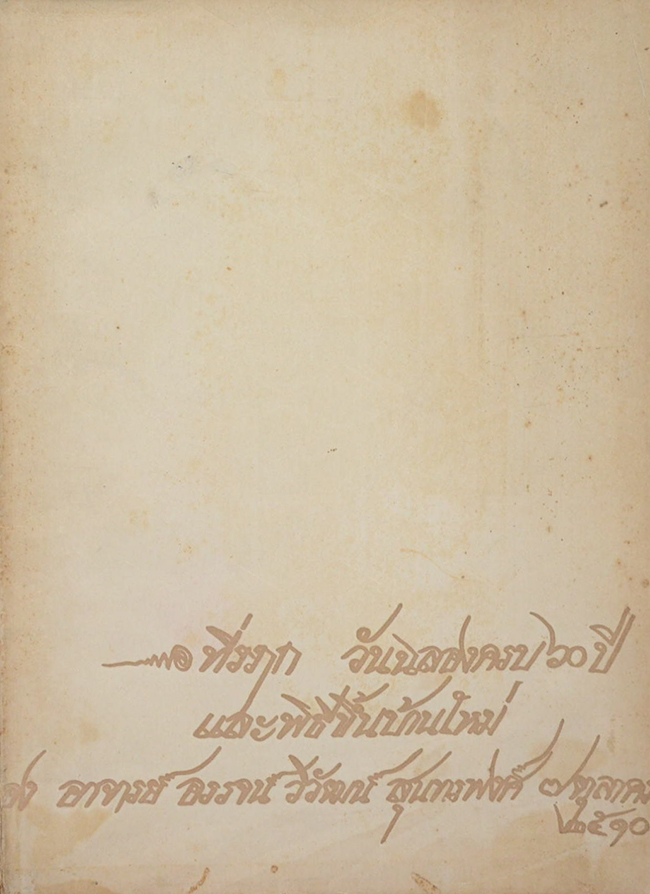 ที่ระฦก วันฉลองครบ ๖๐ ปี
และพิธีขึ้นบ้านใหม่
อาจารย์ วิวัฒน์ สุนทรพงศ์ ๗ ตุลาคม
๒๕๑๐